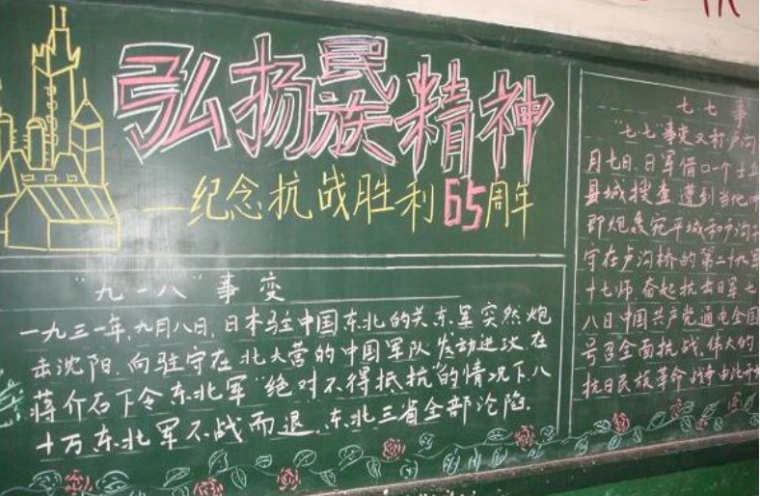 弘扬民族精神
—纪念抗战胜利65周年
"九·一八"事变
一九三一年,九月八日,日本驻中国东北的关东军突然炮
击沈阳,向驻守在北大营的中国军队发动进攻,在
蒋介石下令东北军"绝对不得抵抗"的情况下,八
十万东北军不战而退,东北三省全部沦陷.
七七事
"七七事变又称卢沟
月七日,日军借口一个士兵
县城搜查遭到当地
即炮轰宛平城和卢沟
守在卢沟桥的第二十九军
十七师奋起抗击日军七
八日中国共产党通电全国
号召全面抗战,伟大的
抗日民族革命战争由此开